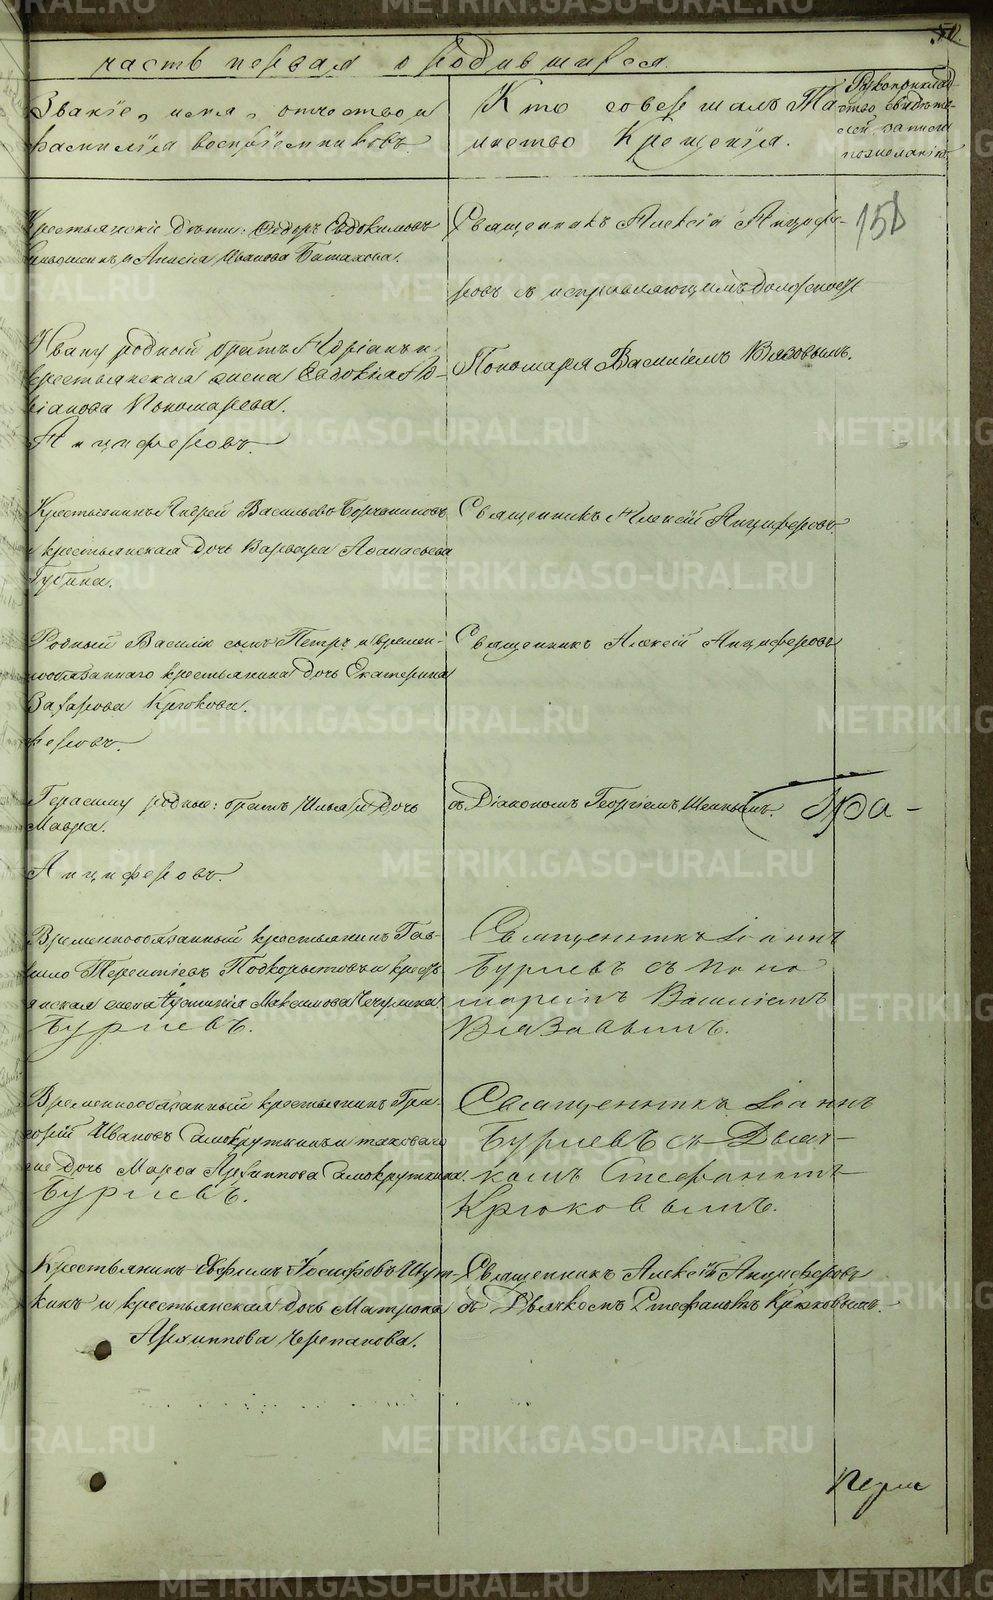 часть первая о родившихся.
Званіе, имя, отчество и
фамилія воспріемниковъ.
Кто совершалъ Та-
инство Крещенія.
Рукоприклад-
ство свидѣте-
лей записи
по желанію.
Крестьянскіе дѣти: Ѳедоръ Евдокимовъ
и Анисія Иванова Баташова.
Священникъ Алексій Анцифе-
ровъ съ исправляющимъ должность
Пономаря Василіемъ Вязовымъ.
151
Ивану родный братъ Адріанъ и
крестьянская жена Евдокія Ад-
ріанова Пономарева.
Анциферовъ.
Крестьянинъ Андрей Васильевъ Борчаниновъ
и крестьянская дочь Варвара Аѳанасьева
Губина.
Священникъ Алексій Анциферовъ.
Родный Василія сынъ Петръ и времен-
нообязаннаго крестьянина дочь Екатерина
Захарова Крюкова.
феровъ.
Священникъ Алексій Анциферовъ
Герасиму родные: братъ Илья и дочь
Мавра.
Анциферовъ.
съ Діакономъ Георгіемъ
Временнообязанный крестьянинъ Гав-
рило Терентіевъ Подкорытовъ и кресть-
янская жена Максимова Чечулина.
Буриевъ.
Священникъ Іоаннъ
Буриевъ съ Поно-
маремъ Василіемъ
Вязовымъ.
Временнообязанный крестьянинъ Гри-
горій Ивановъ Самокруткинъ и таковаго
же дочь Марѳа Архиппова Самокруткина.
Буриевъ.
Священникъ Іоаннъ
Буриевъ съ Дьяч-
комъ Стефаномъ
Крюковымъ.
Крестьянинъ Ефимъ Іосифовъ Шут-
кинъ и крестьянская дочь Матрона
Архиппова Черепанова.
Священникъ Алексій Анциферовъ
съ Дьячкомъ Стефаномъ Крюковымъ.
METRIKI.GASO-URAL.RU